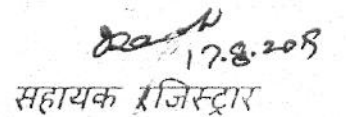 17.8.2015
सहायक रजिस्ट्रार